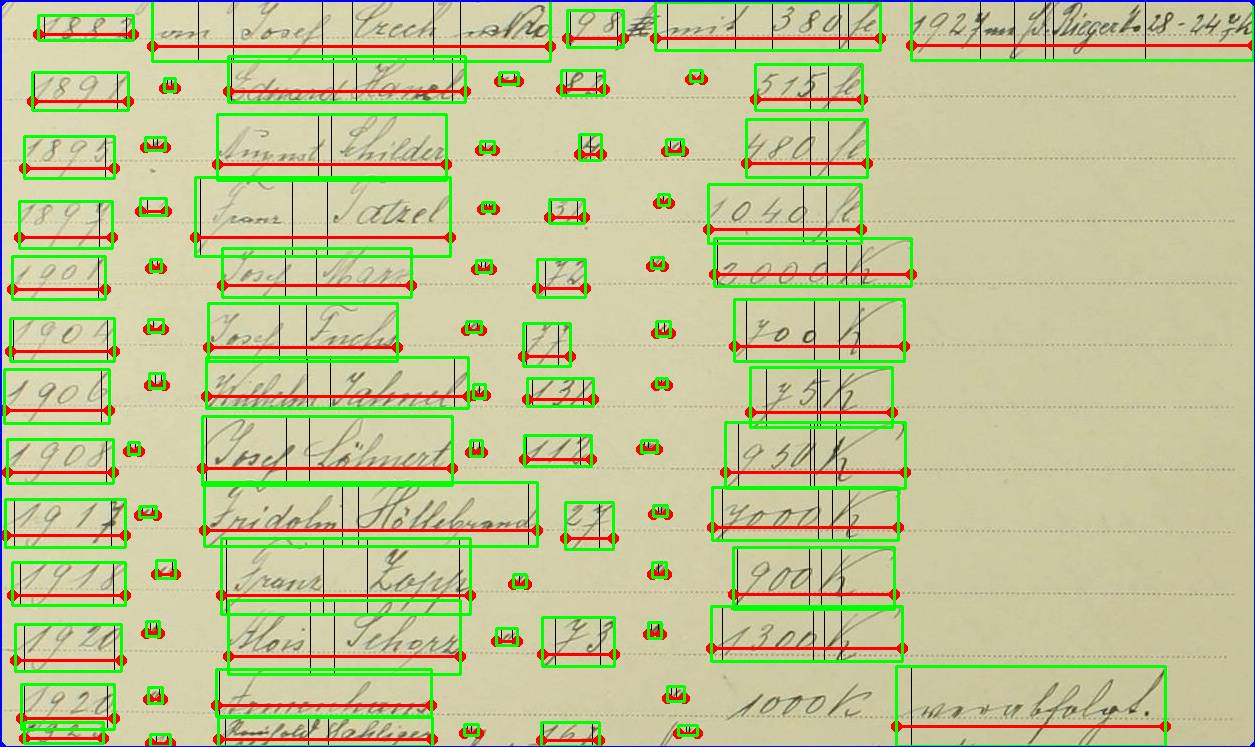 1882 an Josef Czech No 98 mit 380 fl 1927 an J. Rieger No 28 - 24
1891 " Eduard Hanel " 82 " 515 fl
1895 " August Schilder " 4 " 480 fl
1897 " Franz Tatzel " 31 " 1040 fl
1901 " Josef Mann " 72 " 2000 K
1904 " Josef Fuchs " 77 " 700 K
1906 " Wilhelm Jahnel " 131 " 75 K
1908 " Josef Löhnert " 112 " 950 K
1917 " Fridolin Höllebrand 27 " 7000 K
1918 " Franz Zopp " " 900 K
1920 " Alois Schorz " 73 " 1300 K
1920 " Armenhaus " 1000 K verabfolgt.